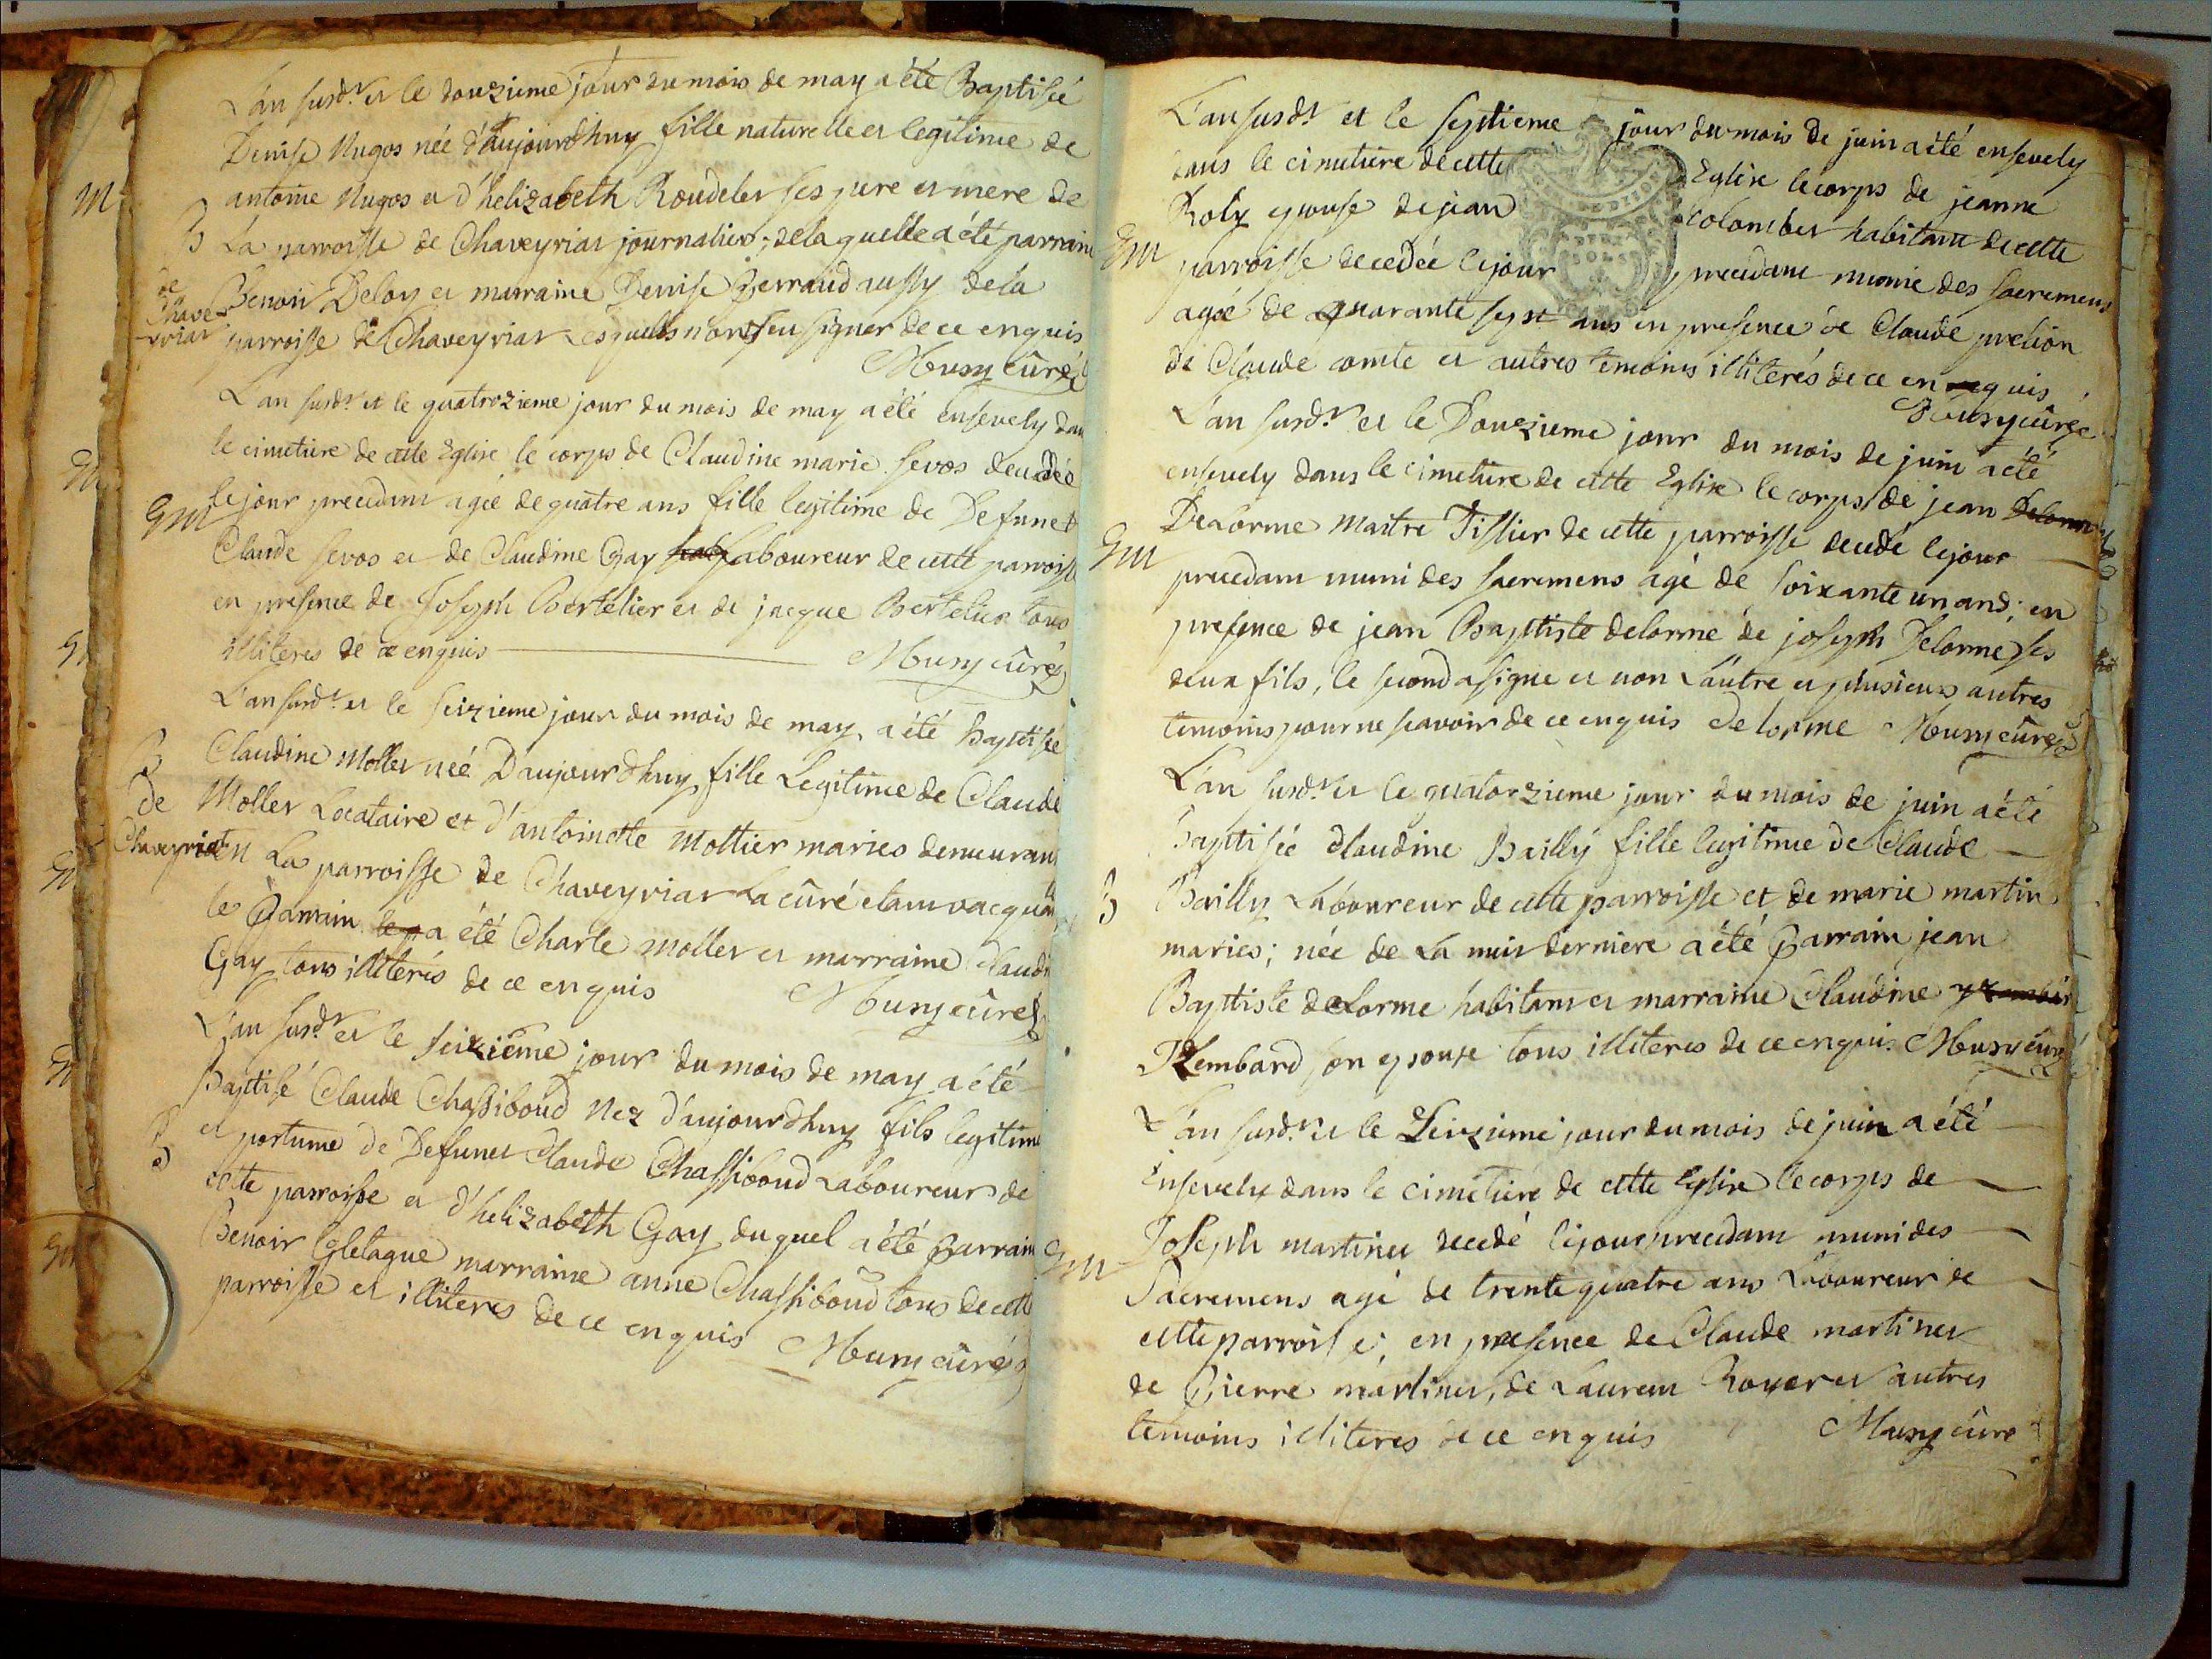 L'an susdt et le douzieme jour du mois de may a été Baptisée
Denise Nugos née d'aujourdhuy fille naturelle et legitime de
antoine Nugos et d'helizabeth Roudelet ses pere et mere de
B La parroisse de Chaveyriat journalier; de la quelle a été parrain
de Chaveyriat
Benoit Deloy et marraine Denise Perraud aussy de la
parroisse de Chaveyriat Lesquels n'ont seu signer de ce enquis
Musy curé
L'an susdt et le quatrozieme jour du mois de may a été ensevely dans
le cimetiere de cette Eglise le corps de Claudine marie sevos decedée
Gm le jour precedant agée de quatre ans fille legitime de Defunct
Claude sevos et de Claudine Gay laboureur de cette parroisse
en presence de Joseph Bertelier et de jacque Bertelier tous
illiteres de ce enquis Musy curé
L'an susdt et le seizieme jour du mois de may a été baptisée
B Claudine Mollet née Daujourdhuy fille Legitime de Claude
de Chaveyriat
Mollet Locataire et d'antoinette Mottier maries demeurant
en La parroisse de Chaveyriat La curé etant vacquante
le Parrain a été Charle mollet et marraine Claudine
Gay tous illiterés de ce enquis Musy curé
L'an susdt et le seizieme jour du mois de may a été
Baptisé Claude Chassiboud Nez d'aujourdhuy fils legitime
B et postume de Defunct Claude Chassiboud Laboureur de
cette parroisse et d'helizabeth Gay, duquel a été parrain
Benoit Gletague marraine anne Chassiboud tous de cette
parroisse et illiteres de ce enquis Musy curé
L'an susdt et le septieme jour du mois de juin a été ensevely
dans le cimetiere de cette Eglise le corps de jeanne
Roly epouse de jean Colombet habitant de cette
Gm parroisse decedée le jour precedant munie des sacremens
agée de quarante sept ans en presence de Claude prelion
de Claude comte et autres temoins illiterés de ce enquis
Musy curé
L'an susdt et le Douzieme jour du mois de juin a été
ensevely dans le cimetiere de cette Eglise le corps de jean Delorme
Gm Delorme Maitre Tissier de cette parroisse decedé le jour
precedant muni des sacremens agé de soixante un ans; en
presence de jean Baptiste delorme de joseph Delorme ses
deux fils, le second a signé et non L'autre et plusieurs autres
temoins pour ne scavoir de ce enquis Delorme Musy curé
L'an susdt et le quatorzieme jour du mois de juin a été
baptisée Claudine Bailly fille legitime de Claude
B Bailly Laboureur de cette parroisse et de marie martin
maries; née de La nuit derniere a été parrain jean
Baptiste delorme habitant et marraine Claudine
Rembard son epouse tous illiteres de ce enquis Musy curé
L'an susdt et le seizieme jour du mois de juin a été
Ensevely dans le cimetiere de cette Eglise le corps de
Joseph martinet decedé le jour precedant muni des
Gm Sacremens agé de trente quatre ans Laboureur de
cette parroisse; en presence de Claude martinet
de Pierre martinet, de Laurent Royer et autres
temoins illiteres de ce enquis Musy curé